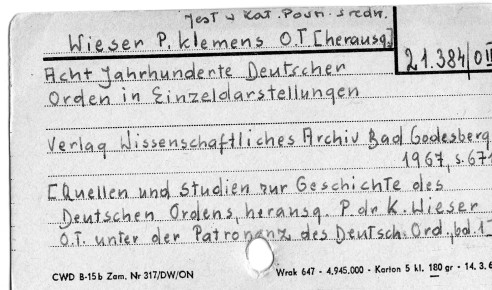 Jest w Kat. Povn. sredn.
Wieser P. Klemens O.T. [herausg.]
21.384/O II
Acht Jahrhunderte Deutscher
Orden in Einzeldarstellungen
Verlag Wissenschaftliches Archiv Bad Godesberg
1967, s. 671
[Quellen und Studien zur Geschichte des
Deutschen Ordens, herausg. P. dr K. Wieser
O.T. unter der Patronanz des Deutsch. Ord., bd. 1]
CWD B-15b Zam. Nr 317/DW/ON
Wrak 647 - 4.945.000 - Karton 5 kl. 180 gr - 14.3.6